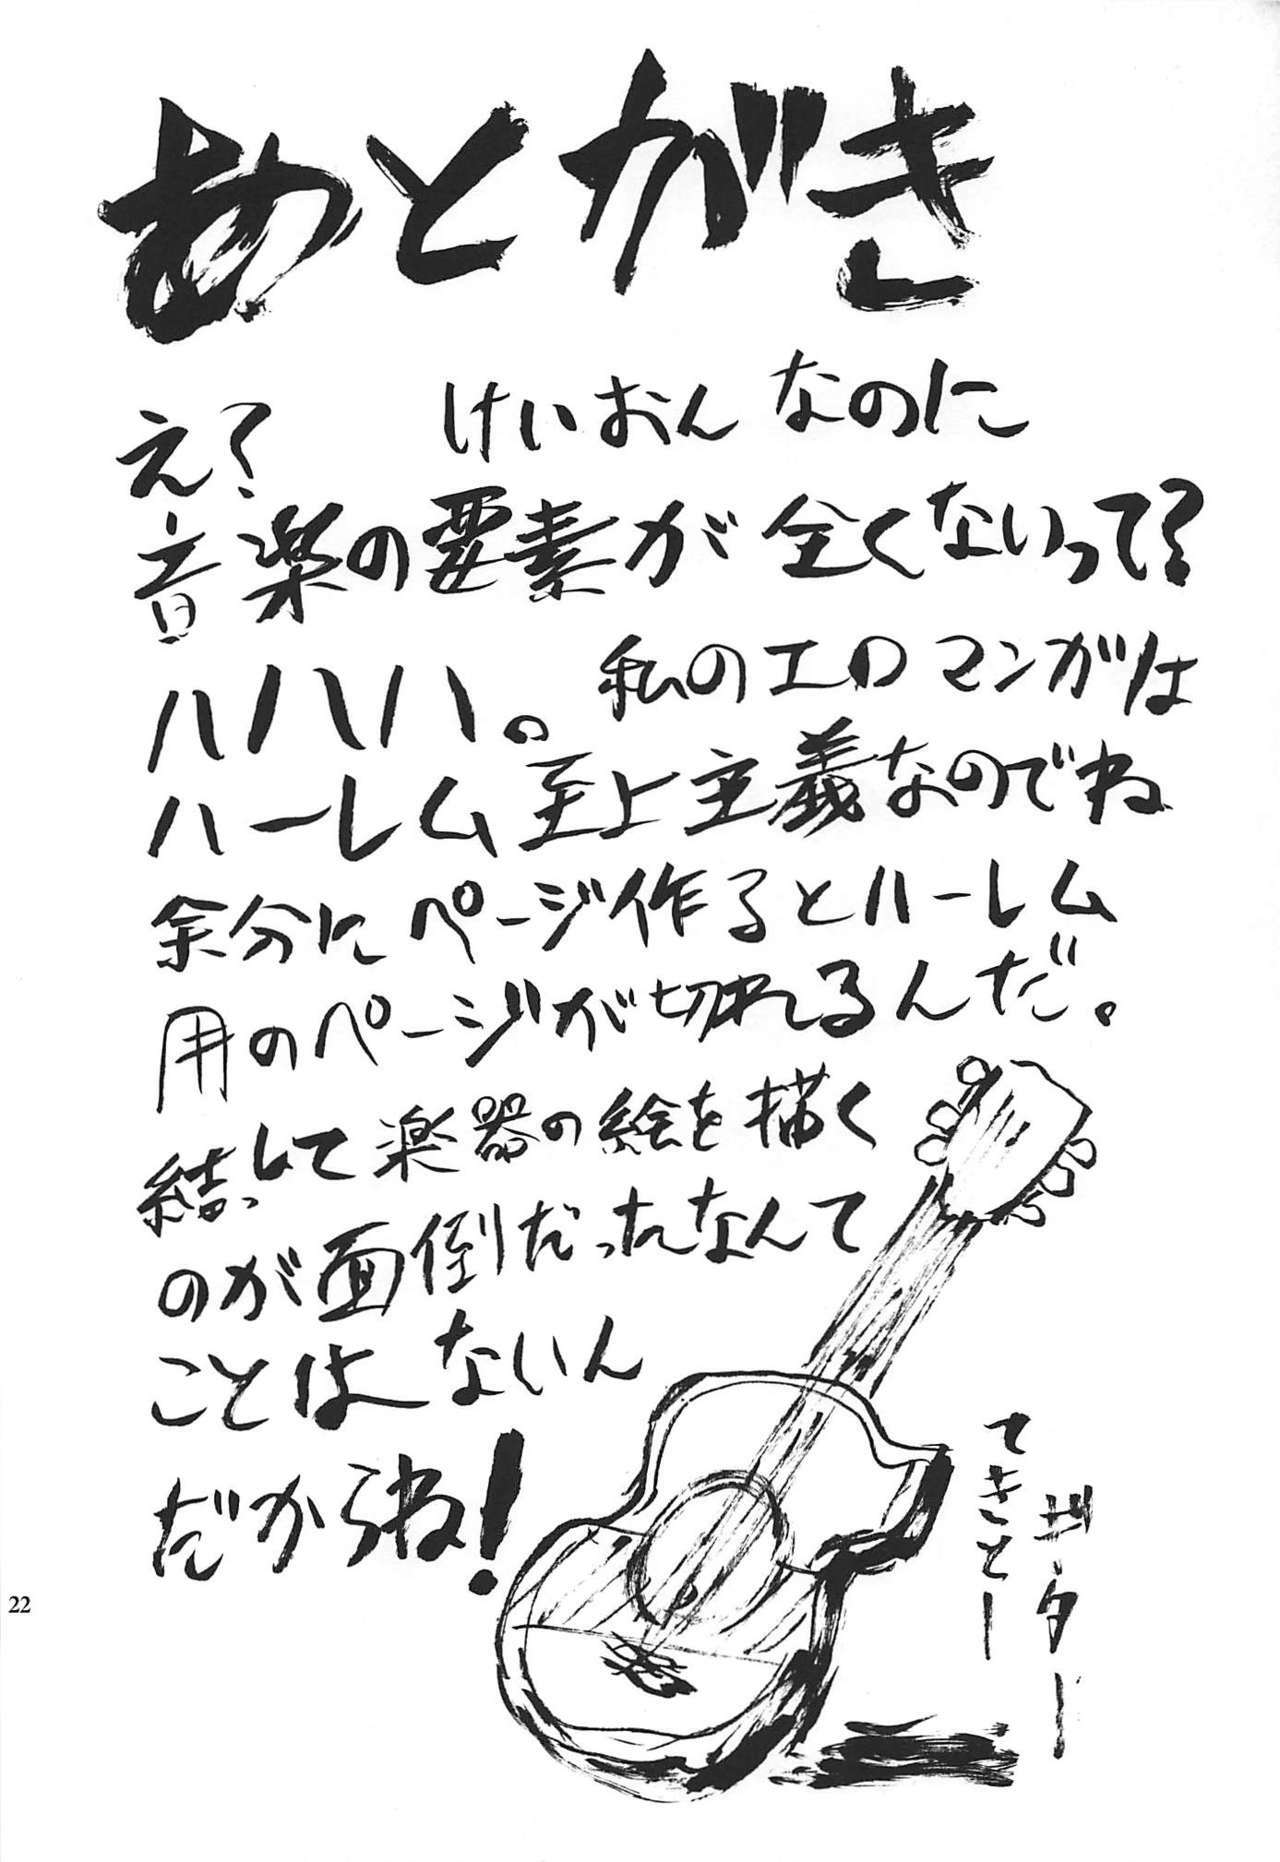 あとがき
え? けいおんなのに
音楽の要素が全くないって?
ハハハ。私のエロマンガは
ハーレム至上主義なのでね
余分にページ作るとハーレム
用のページが切れるんだ。
結っして楽器の絵を描く
のが面倒だったなんて
ことはないん
だからね!
ギター
てきとー
22